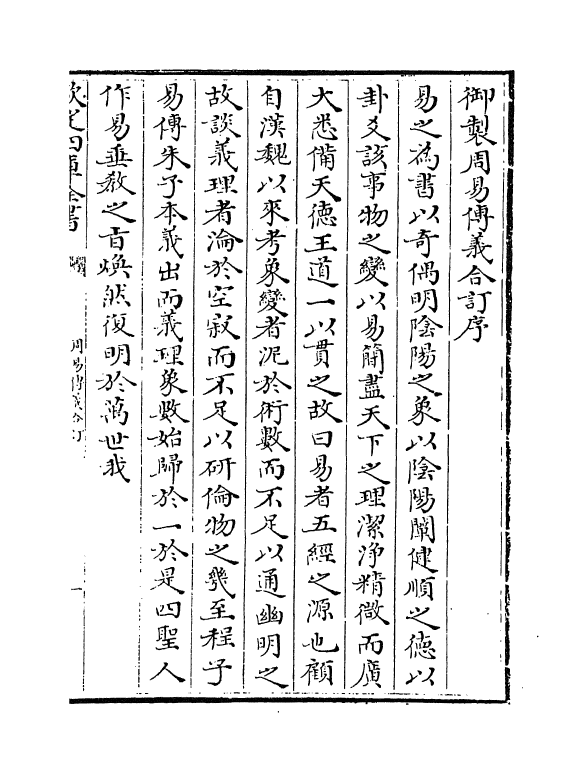 御製周易傳義合訂序
易之為書以奇偶明陰陽之象以陰陽闡健順之德以
卦爻該事物之變以易簡盡天下之理潔淨精微而廣
大悉備天德王道一以貫之故曰易者五經之源也顧
自漢魏以來考象變者泥於術數而不足以通幽明之
故談義理者淪於空寂而不足以研倫物之幾至程子
易傳朱子本義出而義理象數始歸於一於是四聖人
作易垂教之旨煥然復明於萬世我
欽定四庫全書
周易傳義合訂
一